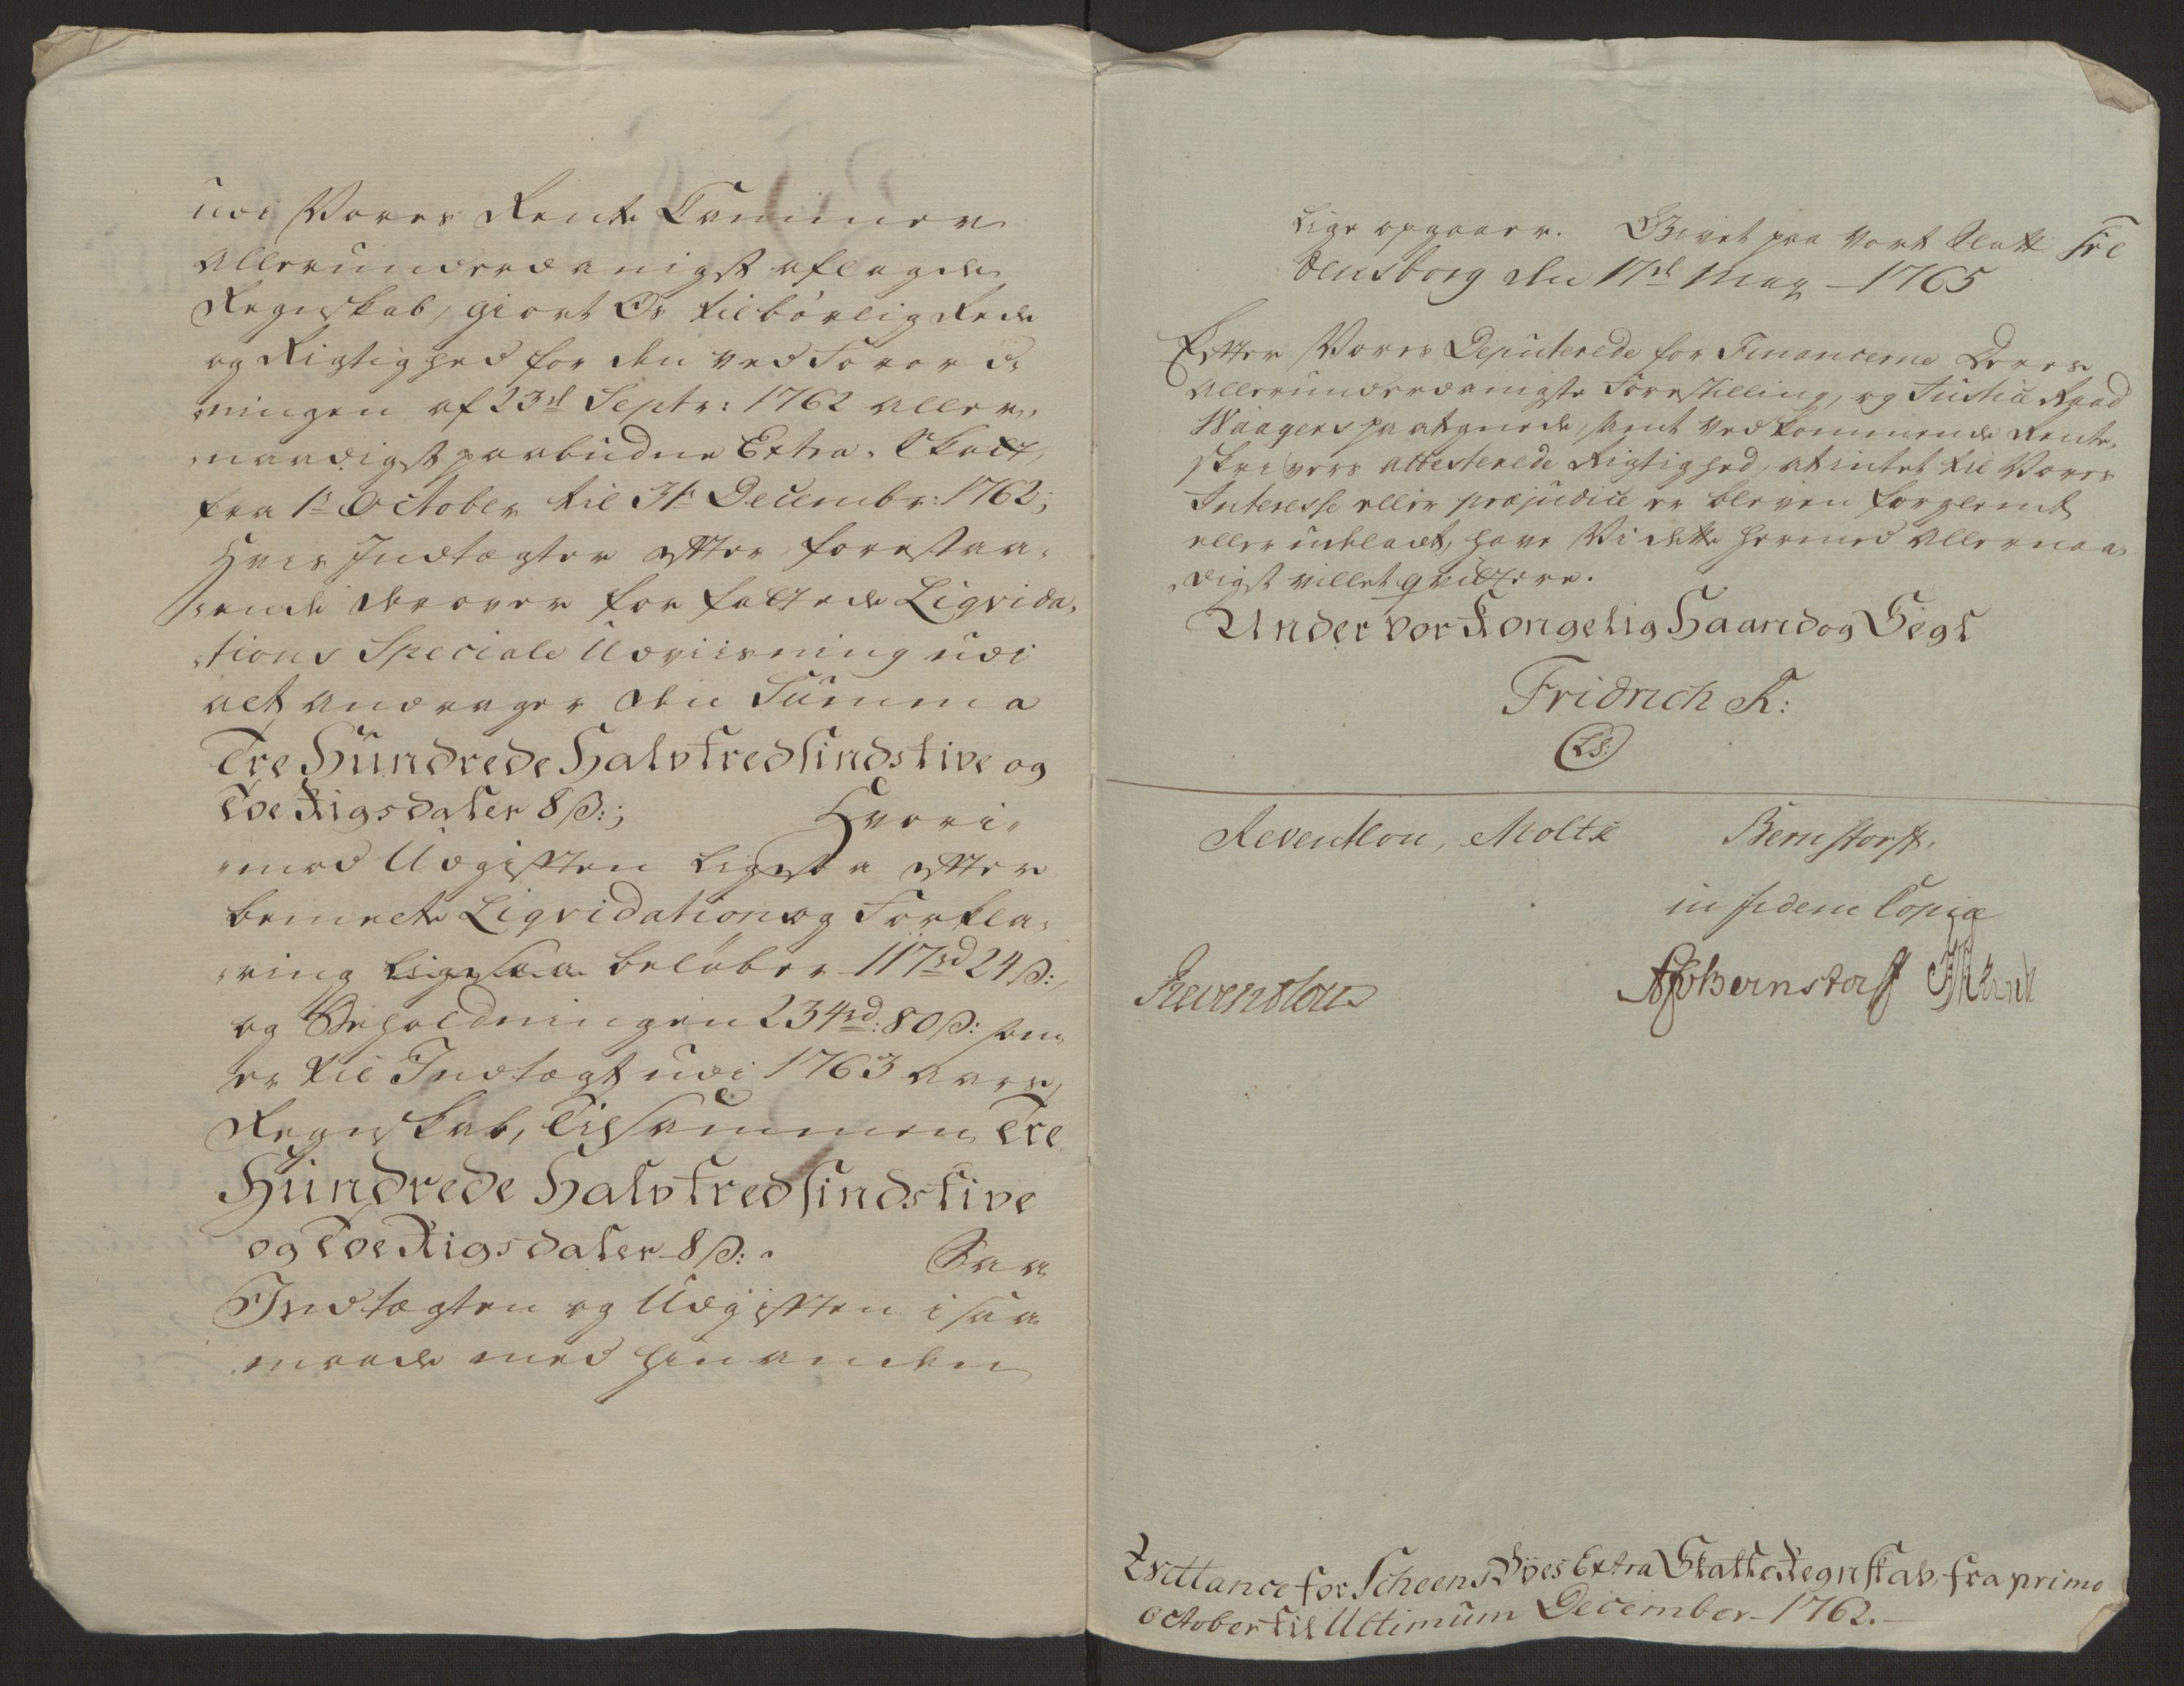 udi Vores Rente Cammer
Allerunderdanigst aflagde
Regnskab, giort Os tilbørlig Rede
og Rigtighed for den ved Forord¬
ningen af 23d Septr: 1762 aller¬
naadigst paabudne Extra-Skatt,
fra 1ste October til 31te Decembr: 1762;
Hvis Indtægter efter forestaa¬
ende derover forfattede Liqvida¬
tions Speciale Udviisning udi
alt andrager den Summa
Tre Hundrede Halvtredsindstive og
Toe Rigsdaler 8 ß:; Hvori¬
mod Udgiften ligesaa efter
bemeete Liqvidation og Forkla¬
ring ligesaa beløber 117rd 24 ß:,
og Beholdningen 234rd: 80 ß: som
er til Indtægt udi 1763 Aars
Regnskab, Tilsammen Tre
Hundrede Halvtredsindstive
og Toe Rigsdaler 8 ß:. Saa
Indtægten og Udgiften i saa
maade med hinanden
lige opgaaer. Givet paa Vort Slott Fre
densborg den 17de May 1765
Efter Vores Deputerede for Financerne Deres
allerunderdanigste Forestilling, og Justice Raad
Waagers paategnede, samt Vedkommende Rente¬
skrivers attesterede Rigtighed, at intet til Vores
Interesse eller præjudice er bleven forglemt
eller udeladt, have Vi dette hermed Allernaa¬
digst villet qvittere.
Under vor Kongelig Haand og Segl
Fridrich R:
(LS:)
Reventlou, Moltke Bernstorff.
in fidem Copiæ
Reventlou Bernstorff
Qvittance for Scheens Byes Extra Skatte Regnskab, fra primo
October til Ultimum December 1762.